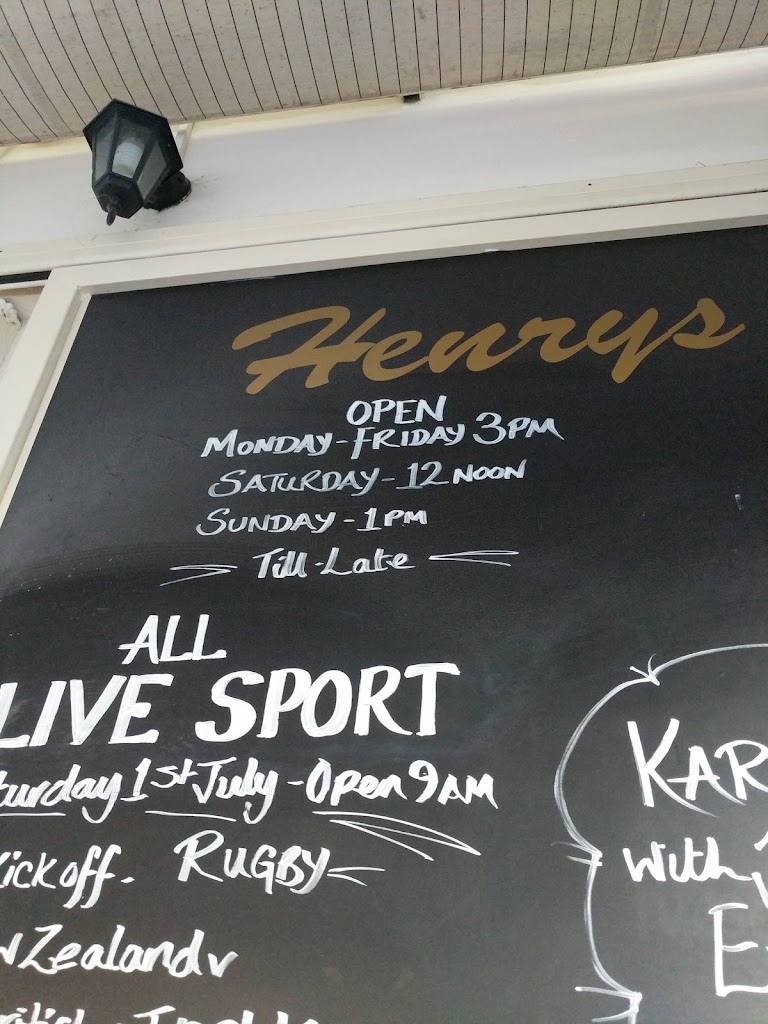 Henrys
OPEN
MONDAY-FRIDAY 3PM
SATURDAY-12 NOON
SUNDAY-1PM
Till-Late
ALL
LIVE SPORT
turday 1st July-Open 9AM
kick off. RUGBY
w Zealand v
KAR
with